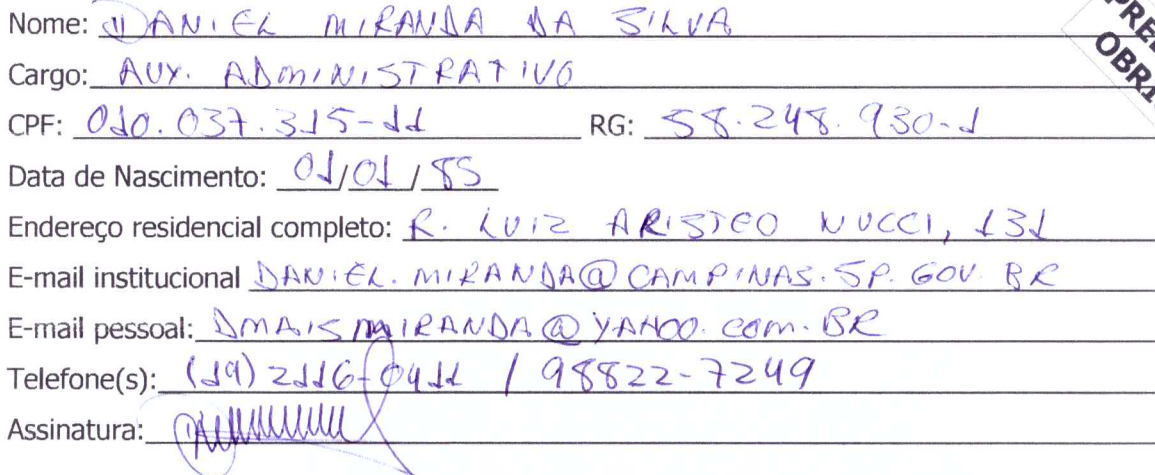 Nome: DANIEL MIRANDA DA SILVA
Cargo: AUX. ADMINISTRATIVO
CPF: 010.037.315-11 RG: 58.248.930-1
Data de Nascimento: 01/01/85
Endereço residencial completo: R. LUIZ ARISTEO NUCCI, 131
E-mail institucional DANIEL.MIRANDA@CAMPINAS.SP.GOV.BR
E-mail pessoal: DMAISMIRANDA@YAHOO.COM.BR
Telefone(s): (19) 2116-0411 / 98822-7249
Assinatura: